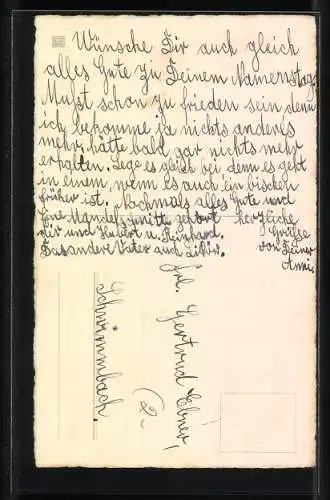 Wünsche Dir auch gleich
alles Gute zu Deinem Namenstag.
Mußt schon zufrieden sein denn
ich bekomme ja nichts anderes
mehr, hätte bald gar nichts mehr
erhalten. Lege es gleich bei, denn es geht
in einem, wenn es auch ein bischen
früher ist. Nochmals alles Gute und
Eine Mandelschnitte gehört herzliche
dir und Hubert u. Reinhard. Grüße
Das andere Vater auch Likör. von Deiner
Anni.
Frl. Gertrud Ebner,
Schwimmbach.